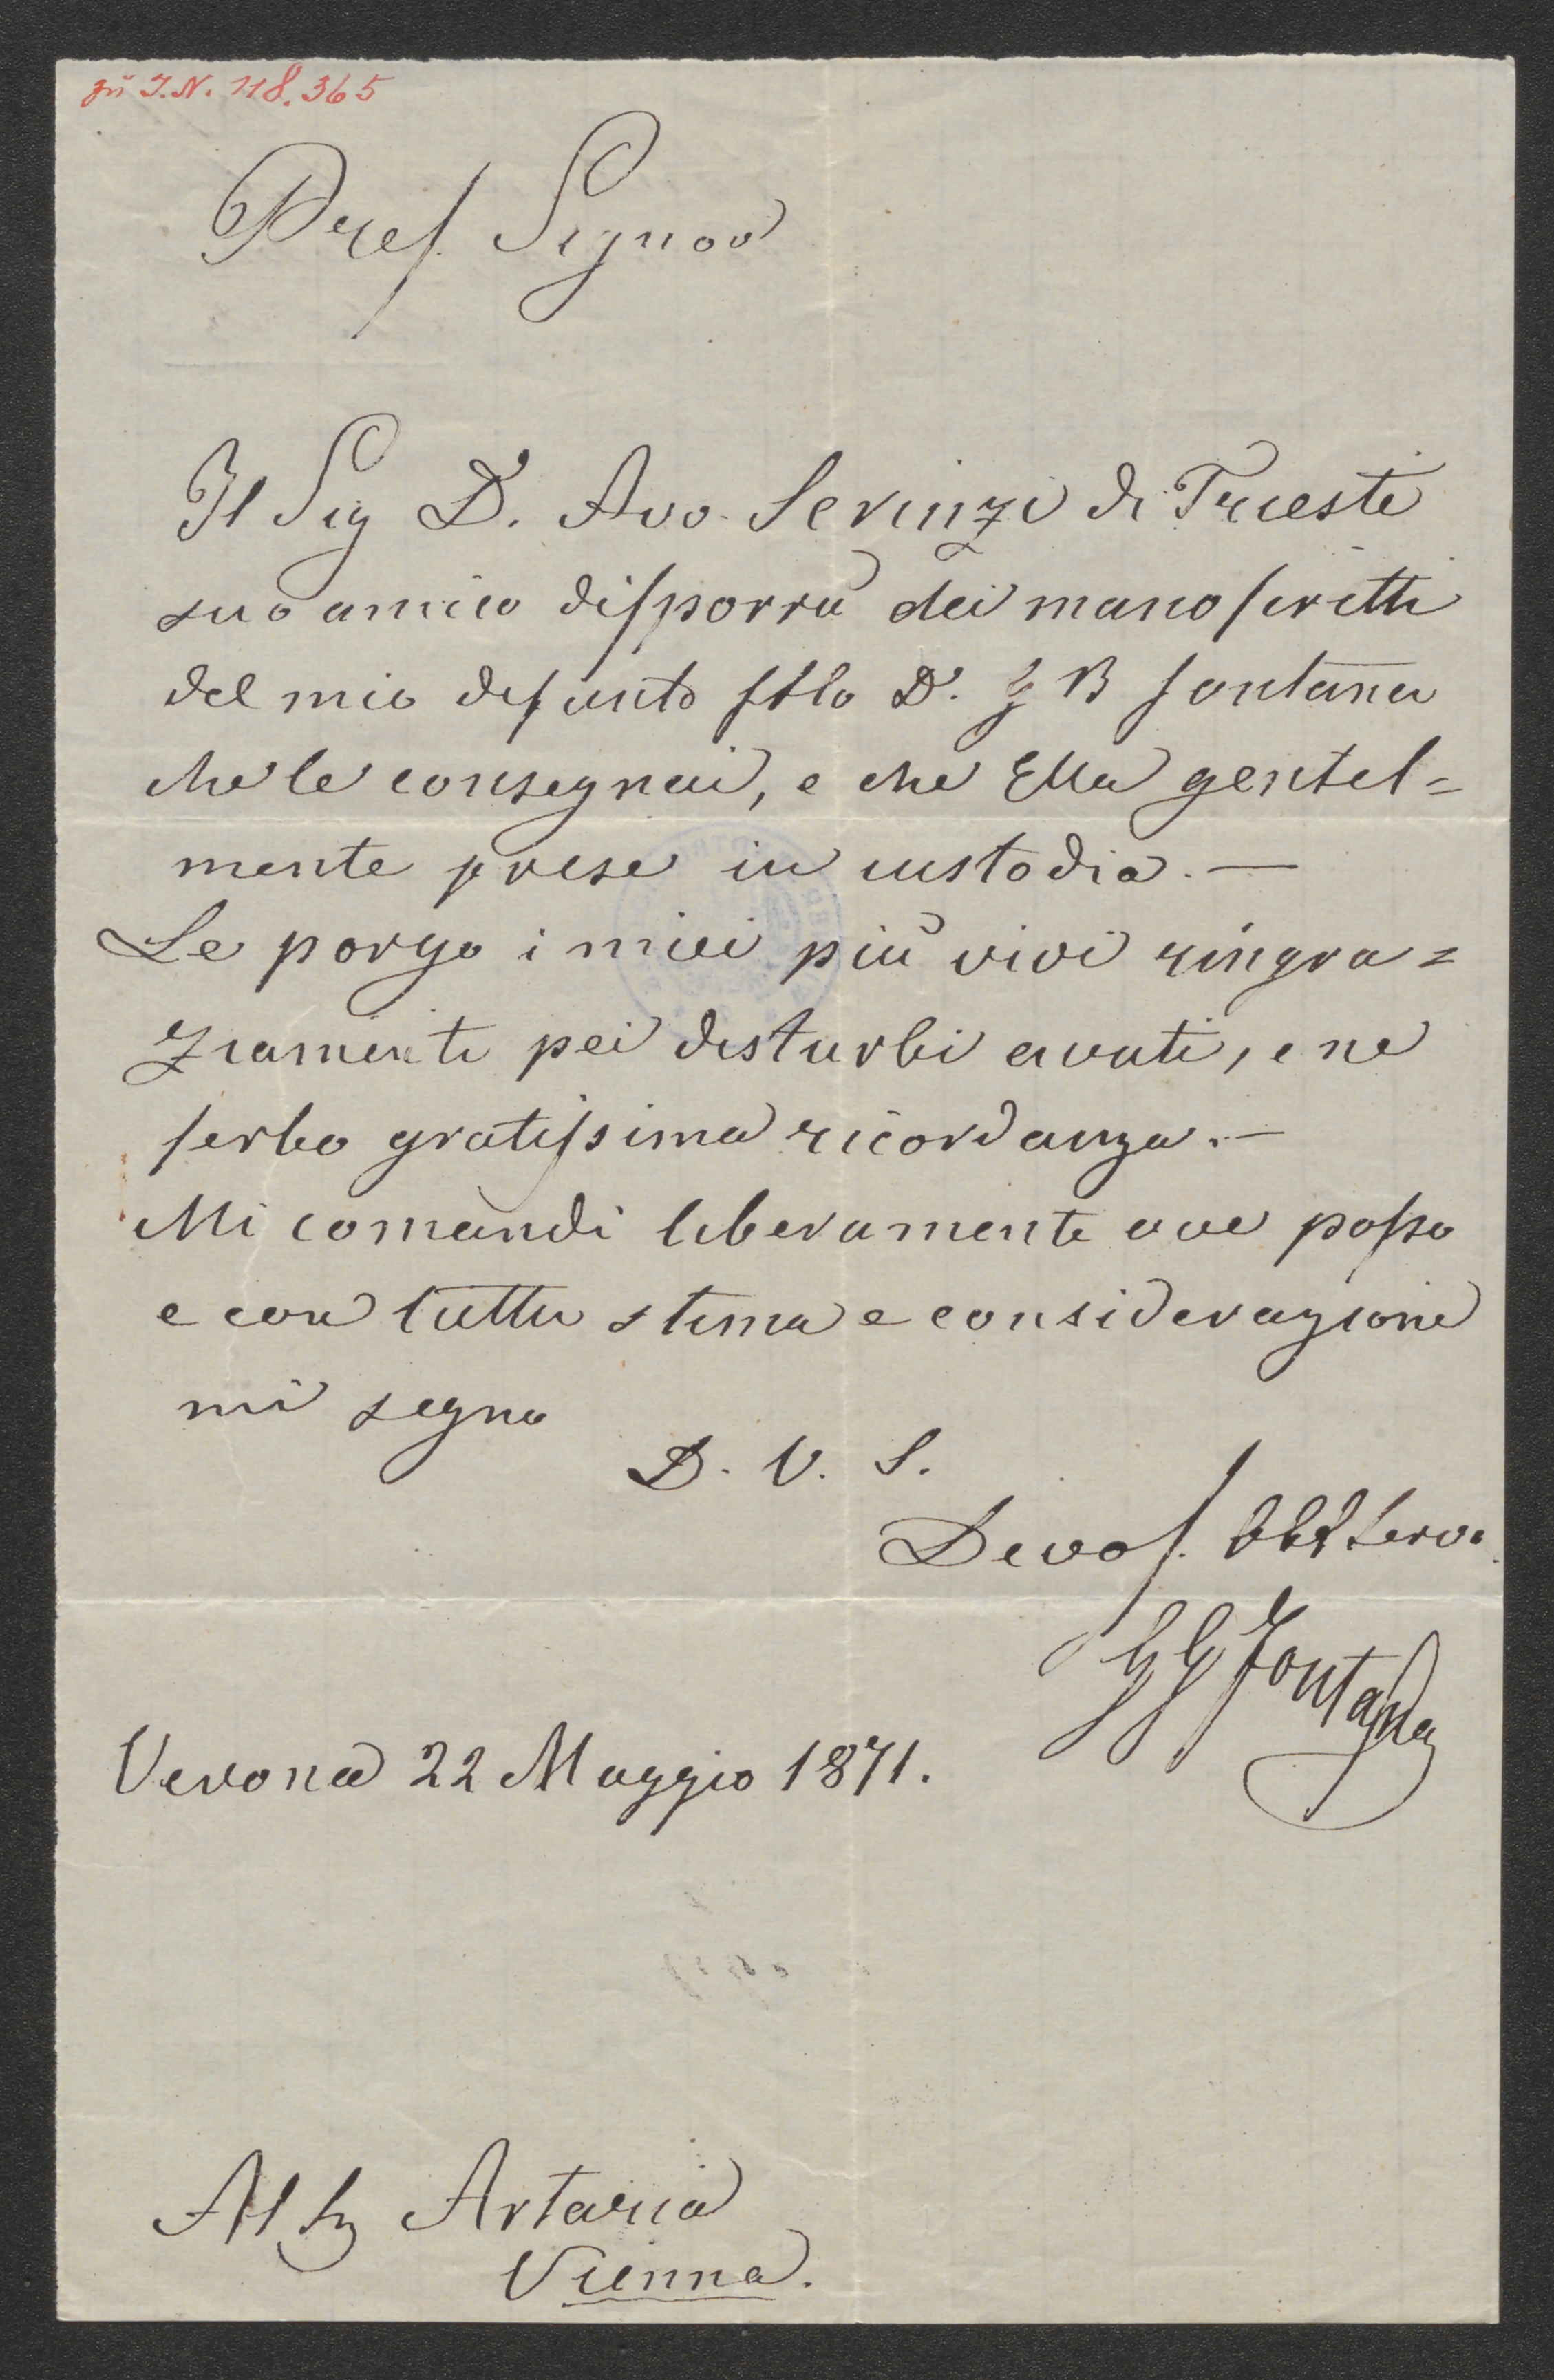 zu I.N. 118.365
Pref. Signor
Il Sig D. Avv. Serinzi di Trieste
suo amico disporrà dei manoscritti
del mio defunto fllo D. G B Fontana
che le consegnai, e che Ella gentil=
mente prese in custodia. —
Le porgo i miei più vivi ringra=
ziamenti pei disturbi avuti, e ne
serbo gratissima ricordanza. —
Mi comandi liberamente ove posso
e con tutta stima e considerazione
mi segno
D. V. S.
Devos. Obb Servo
G G Fontana
Verona 22 Maggio 1871.
Al Sig Artaria
Vienna.